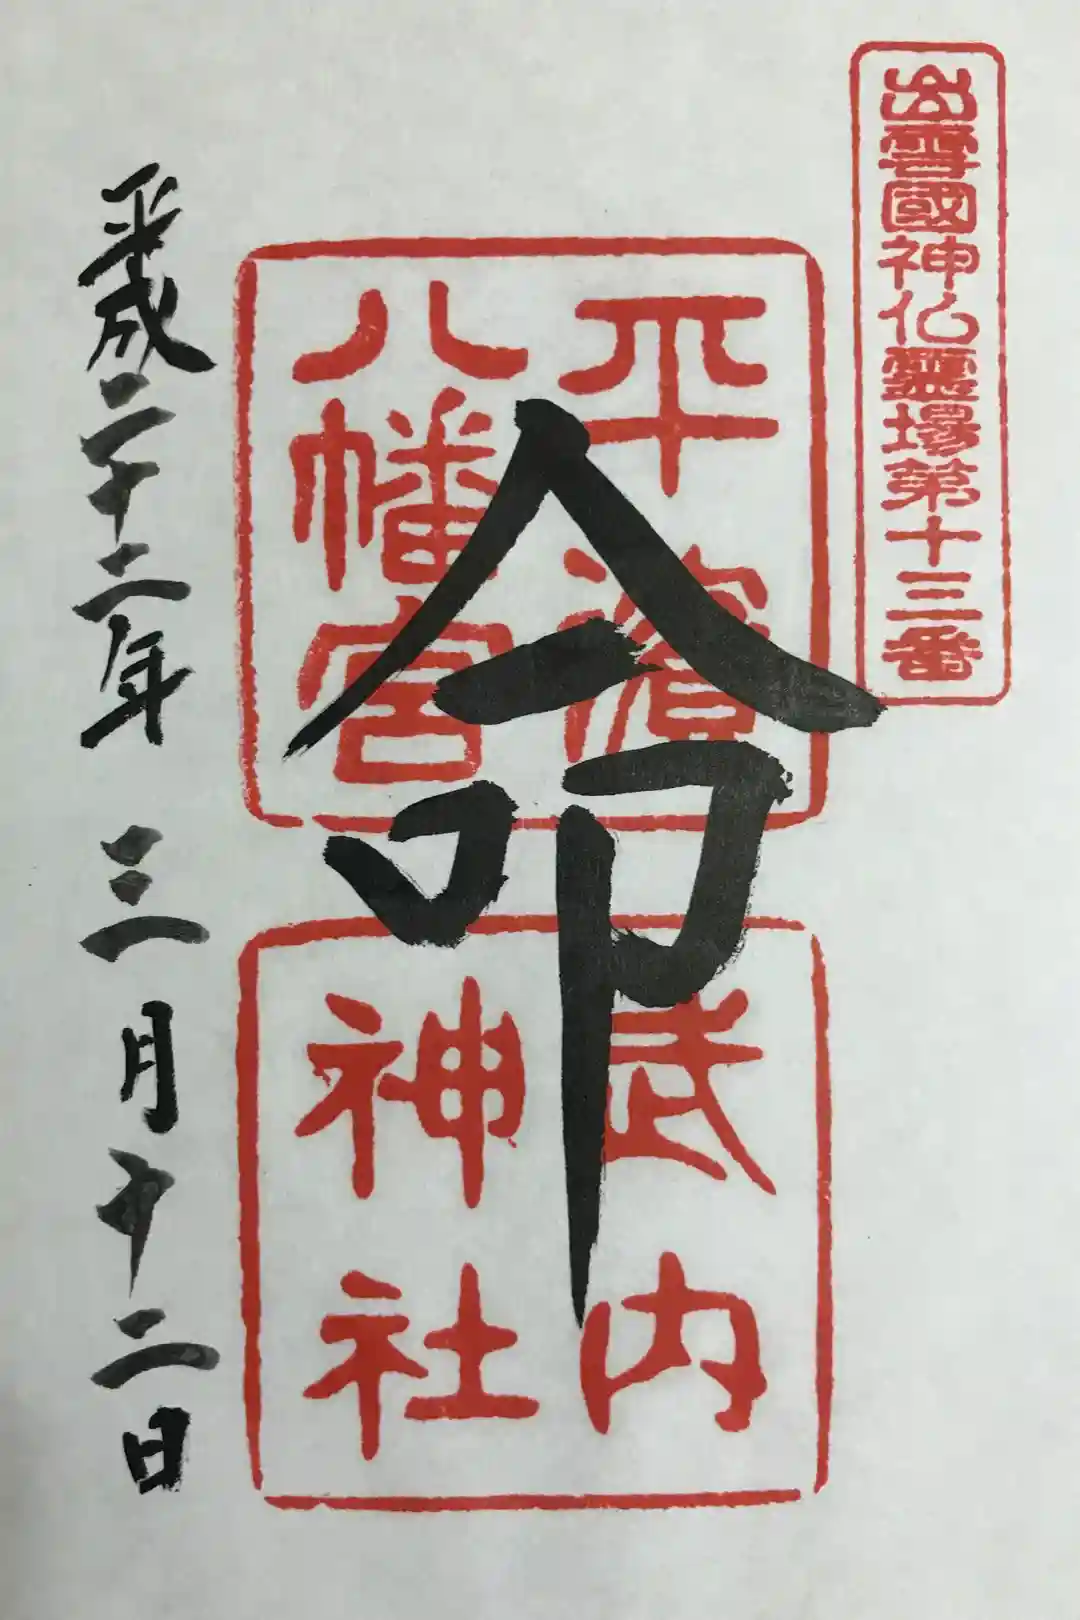 出雲國神仏靈場第十三番
平濱
八幡宮
命
武内
神社
平成二十二年三月十二日